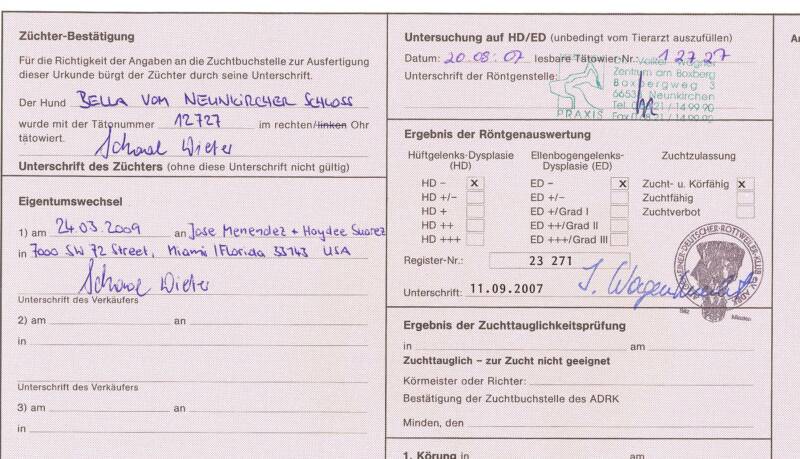 Züchter-Bestätigung
Für die Richtigkeit der Angaben an die Zuchtbuchstelle zur Ausfertigung
dieser Urkunde bürgt der Züchter durch seine Unterschrift.
Der Hund BELLA VOM NEUNKIRCHER SCHLOSS
wurde mit der Tätonummer 12727 im rechten/linken Ohr
tätowiert.
Schorel Dieter
Unterschrift des Züchters (ohne diese Unterschrift nicht gültig)
Eigentumswechsel
1) am 24.03.2009 an Jose Menendez + Haydee Suarez
in 7000 SW 72 Street, Miami/Florida 33143 USA
Unterschrift des Verkäufers
2) am an
in
Unterschrift des Verkäufers
3) am an
in
Untersuchung auf HD/ED (unbedingt vom Tierarzt auszufüllen)
Datum: 20.08.07 lesbare Tätowier-Nr.: 12727
Unterschrift der Röntgenstelle:
Zentrum am Boxberg
Boxbergweg 3
Neunkirchen
PRAXIS
Ergebnis der Röntgenauswertung
Hüftgelenks-Dysplasie (HD)
HD – X
HD +/–
HD +
HD ++
HD +++
Ellenbogengelenks-Dysplasie (ED)
ED – X
ED +/–
ED +/Grad I
ED ++/Grad II
ED +++/Grad III
Zuchtzulassung
Zucht- u. Körfähig X
Zuchtfähig
Zuchtverbot
Register-Nr.: 23 271
Unterschrift: 11.09.2007
ALLGEMEINER-DEUTSCHER-ROTTWEILER-KLUB e.V. ADRK
Sitz Minden
Ergebnis der Zuchttauglichkeitsprüfung
in am
Zuchttauglich – zur Zucht nicht geeignet
Körmeister oder Richter:
Bestätigung der Zuchtbuchstelle des ADRK
Minden, den
1. Körung in am